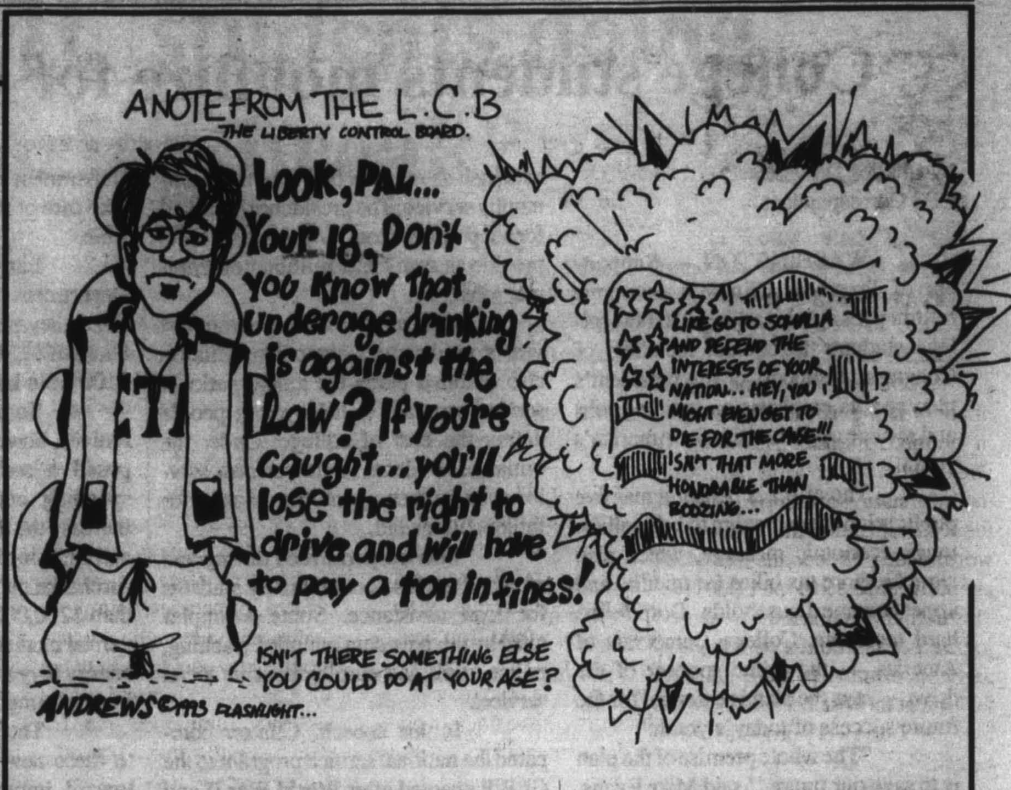 A NOTE FROM THE L.C.B
THE LIBERTY CONTROL BOARD.
LOOK, PAL...
Your 18, Don't
you know that
underage drinking
is against the
Law? If you're
caught... you'll
lose the right to
drive and will have
to pay a ton in fines!
ISN'T THERE SOMETHING ELSE
YOU COULD DO AT YOUR AGE?
ETI
ANDREWS © 1993 FLASHLIGHT...
LIKE GO TO SOMALIA
AND DEFEND THE
INTERESTS OF YOUR
NATION... HEY, YOU
MIGHT EVEN GET TO
DIE FOR THE CAUSE!!!
ISN'T THAT MORE
HONORABLE THAN
BOOZING...